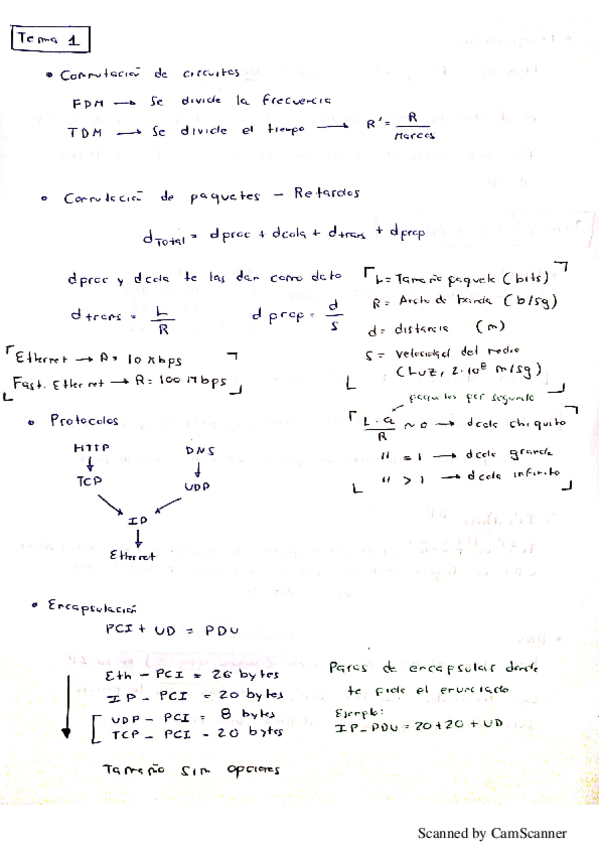 Tema 1
• Conmutación de circuitos
FDM → Se divide la frecuencia
TDM → Se divide el tiempo → R' = R / Marcos
• Conmutación de paquetes - Retardos
dTotal = dproc + dcola + dtrans + dprop
dproc y dcola te las dan como dato
dtrans = L / R
dprop = d / s
L = Tamaño paquete (bits)
R = Ancho de banda (b/sg)
d = distancia (m)
S = velocidad del medio
(Luz, 2·10⁸ m/sg)
Ethernet → R = 10 Mbps
Fast. Ethernet → R = 100 Mbps
paquetes por segundo
L · a / R ~ 0 → dcola chiquito
" = 1 → dcola grande
" > 1 → dcola infinito
• Protocolos
HTTP DNS
TCP UDP
IP
Ethernet
• Encapsulación
PCI + UD = PDU
Eth - PCI = 26 bytes
IP - PCI = 20 bytes
UDP - PCI = 8 bytes
TCP - PCI = 20 bytes
Tamaño sin opciones
Paras de encapsular donde
te pide el enunciado
Ejemplo:
IP-PDU = 20 + 20 + UD
Scanned by CamScanner